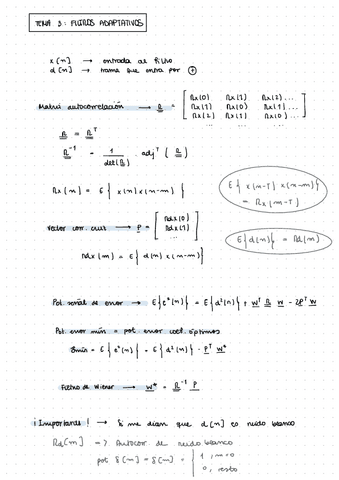 TEMA 3: FILTROS ADAPTATIVOS
x[n] → entrada al filtro
d[n] → trama que entra por ⊕
Matriz autocorrelación → R = [ Rx(0) Rx(1) Rx(2) ...
Rx(1) Rx(0) Rx(1) ...
Rx(2) Rx(1) Rx(0) ...
... ... ... ]
R = R^T
R^-1 = 1/det(R) · adj^T (R)
Rx[m] = E{ x(n) x(n-m) }
E{ x(n-T) x(n-m) } = Rx(m-T)
Vector corr. cruz → P = [ Rdx(0)
Rdx(1)
... ]
E{d(n)} = Rd(m)
Rdx(m) = E{ d(n) x(n-m) }
Pot. señal de error → E{e²(n)} = E{d²(n)} + W^T R W - 2P^T W
Pot. error mín = pot error coef. óptimos
Emín = E{ e²(n) } = E{ d²(n) } - P^T W*
Filtro de Wiener → W* = R^-1 P
¡Importante! → Si me dicen que d[n] es ruido blanco
Rd[m] => Autocor. de ruido blanco
pot δ[m] = δ[m] = { 1, m=0
0, resto